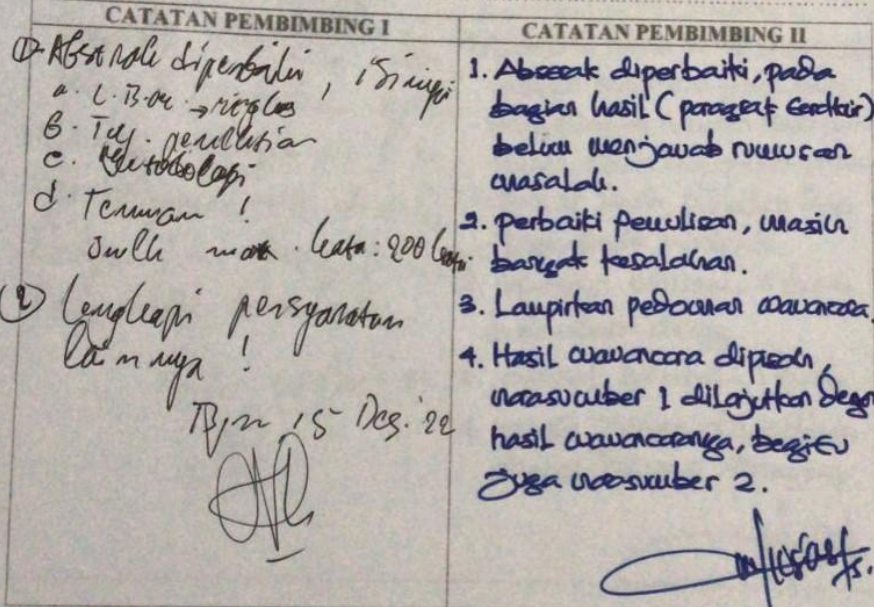 CATATAN PEMBIMBING I
① Abstrak diperbaiki, isinya
a. L.B.M → ringkas
b. Tuj. penelitian
c. Metodologi
d. Temuan !
Jmlh mak. kata: 200 kata
② Lengkapi persyaratan
lainnya !
Bjm 15 Des. '22
CATATAN PEMBIMBING II
1. Absrak diperbaiki, pada
bagian hasil (paragraf terakhir)
belum menjawab rumusan
masalah.
2. perbaiki penulisan, masih
banyak kesalahan.
3. Lampirkan pedoman wawancara.
4. Hasil wawancara dipisah,
narasumber 1 dilanjutkan dengan
hasil wawancaranya, begitu
juga narasumber 2.